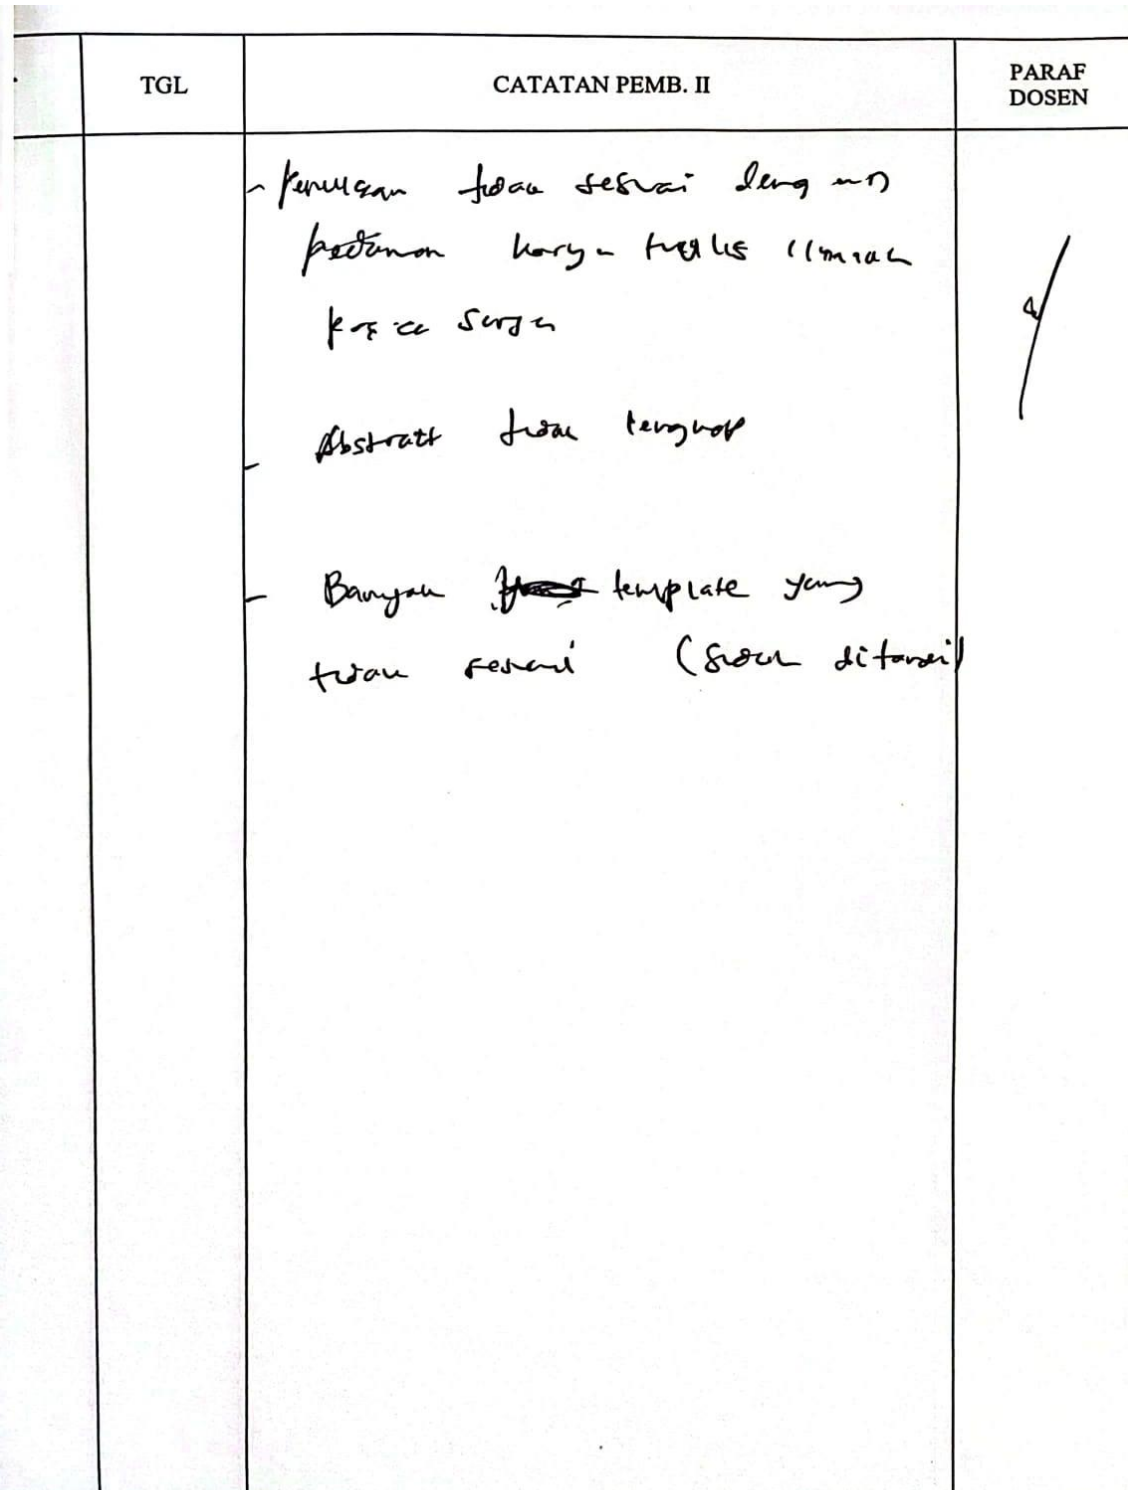 TGL
CATATAN PEMB. II
PARAF
DOSEN
- Penulisan tidak sesuai dengan
pedoman karya tulis ilmiah
- Abstrak tidak lengkap
- Banyak template yang
tidak sesuai (sudah ditandai)